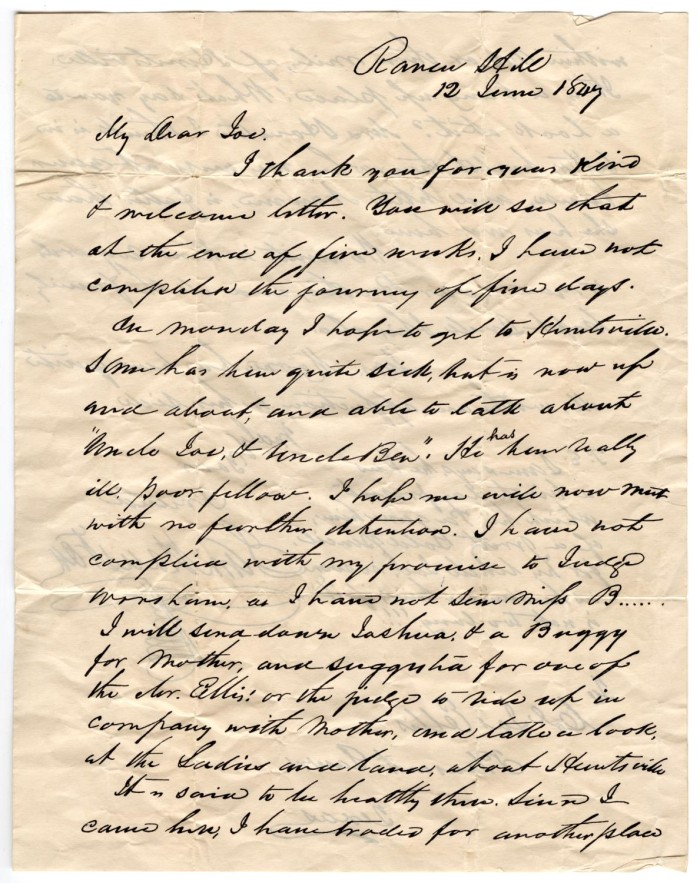 Raven Hill
12 June 1847
My Dear Joe.
I thank you for your Kind
& welcome letter. You will see that
at the end of five weeks, I have not
completed the journey of five days.
On monday I hope to get to Huntsville.
Sam has been quite sick, but is now up
and about, and able to talk about
"Uncle Joe, & Uncle Ben". He has been really
ill, poor fellow. I hope we will now meet
with no further detention. I have not
complied with my promise to Judge
Worsham, as I have not seen Miss B......
I will send down Joshua, & a Buggy
for Mother, and suggested for one of
the Mr. Ellis! or the judge to ride up in
company with Mother, and take a look,
at the Ladies and land, about Huntsville
It is said to be healthy there. Since I
came here, I have traded for another place